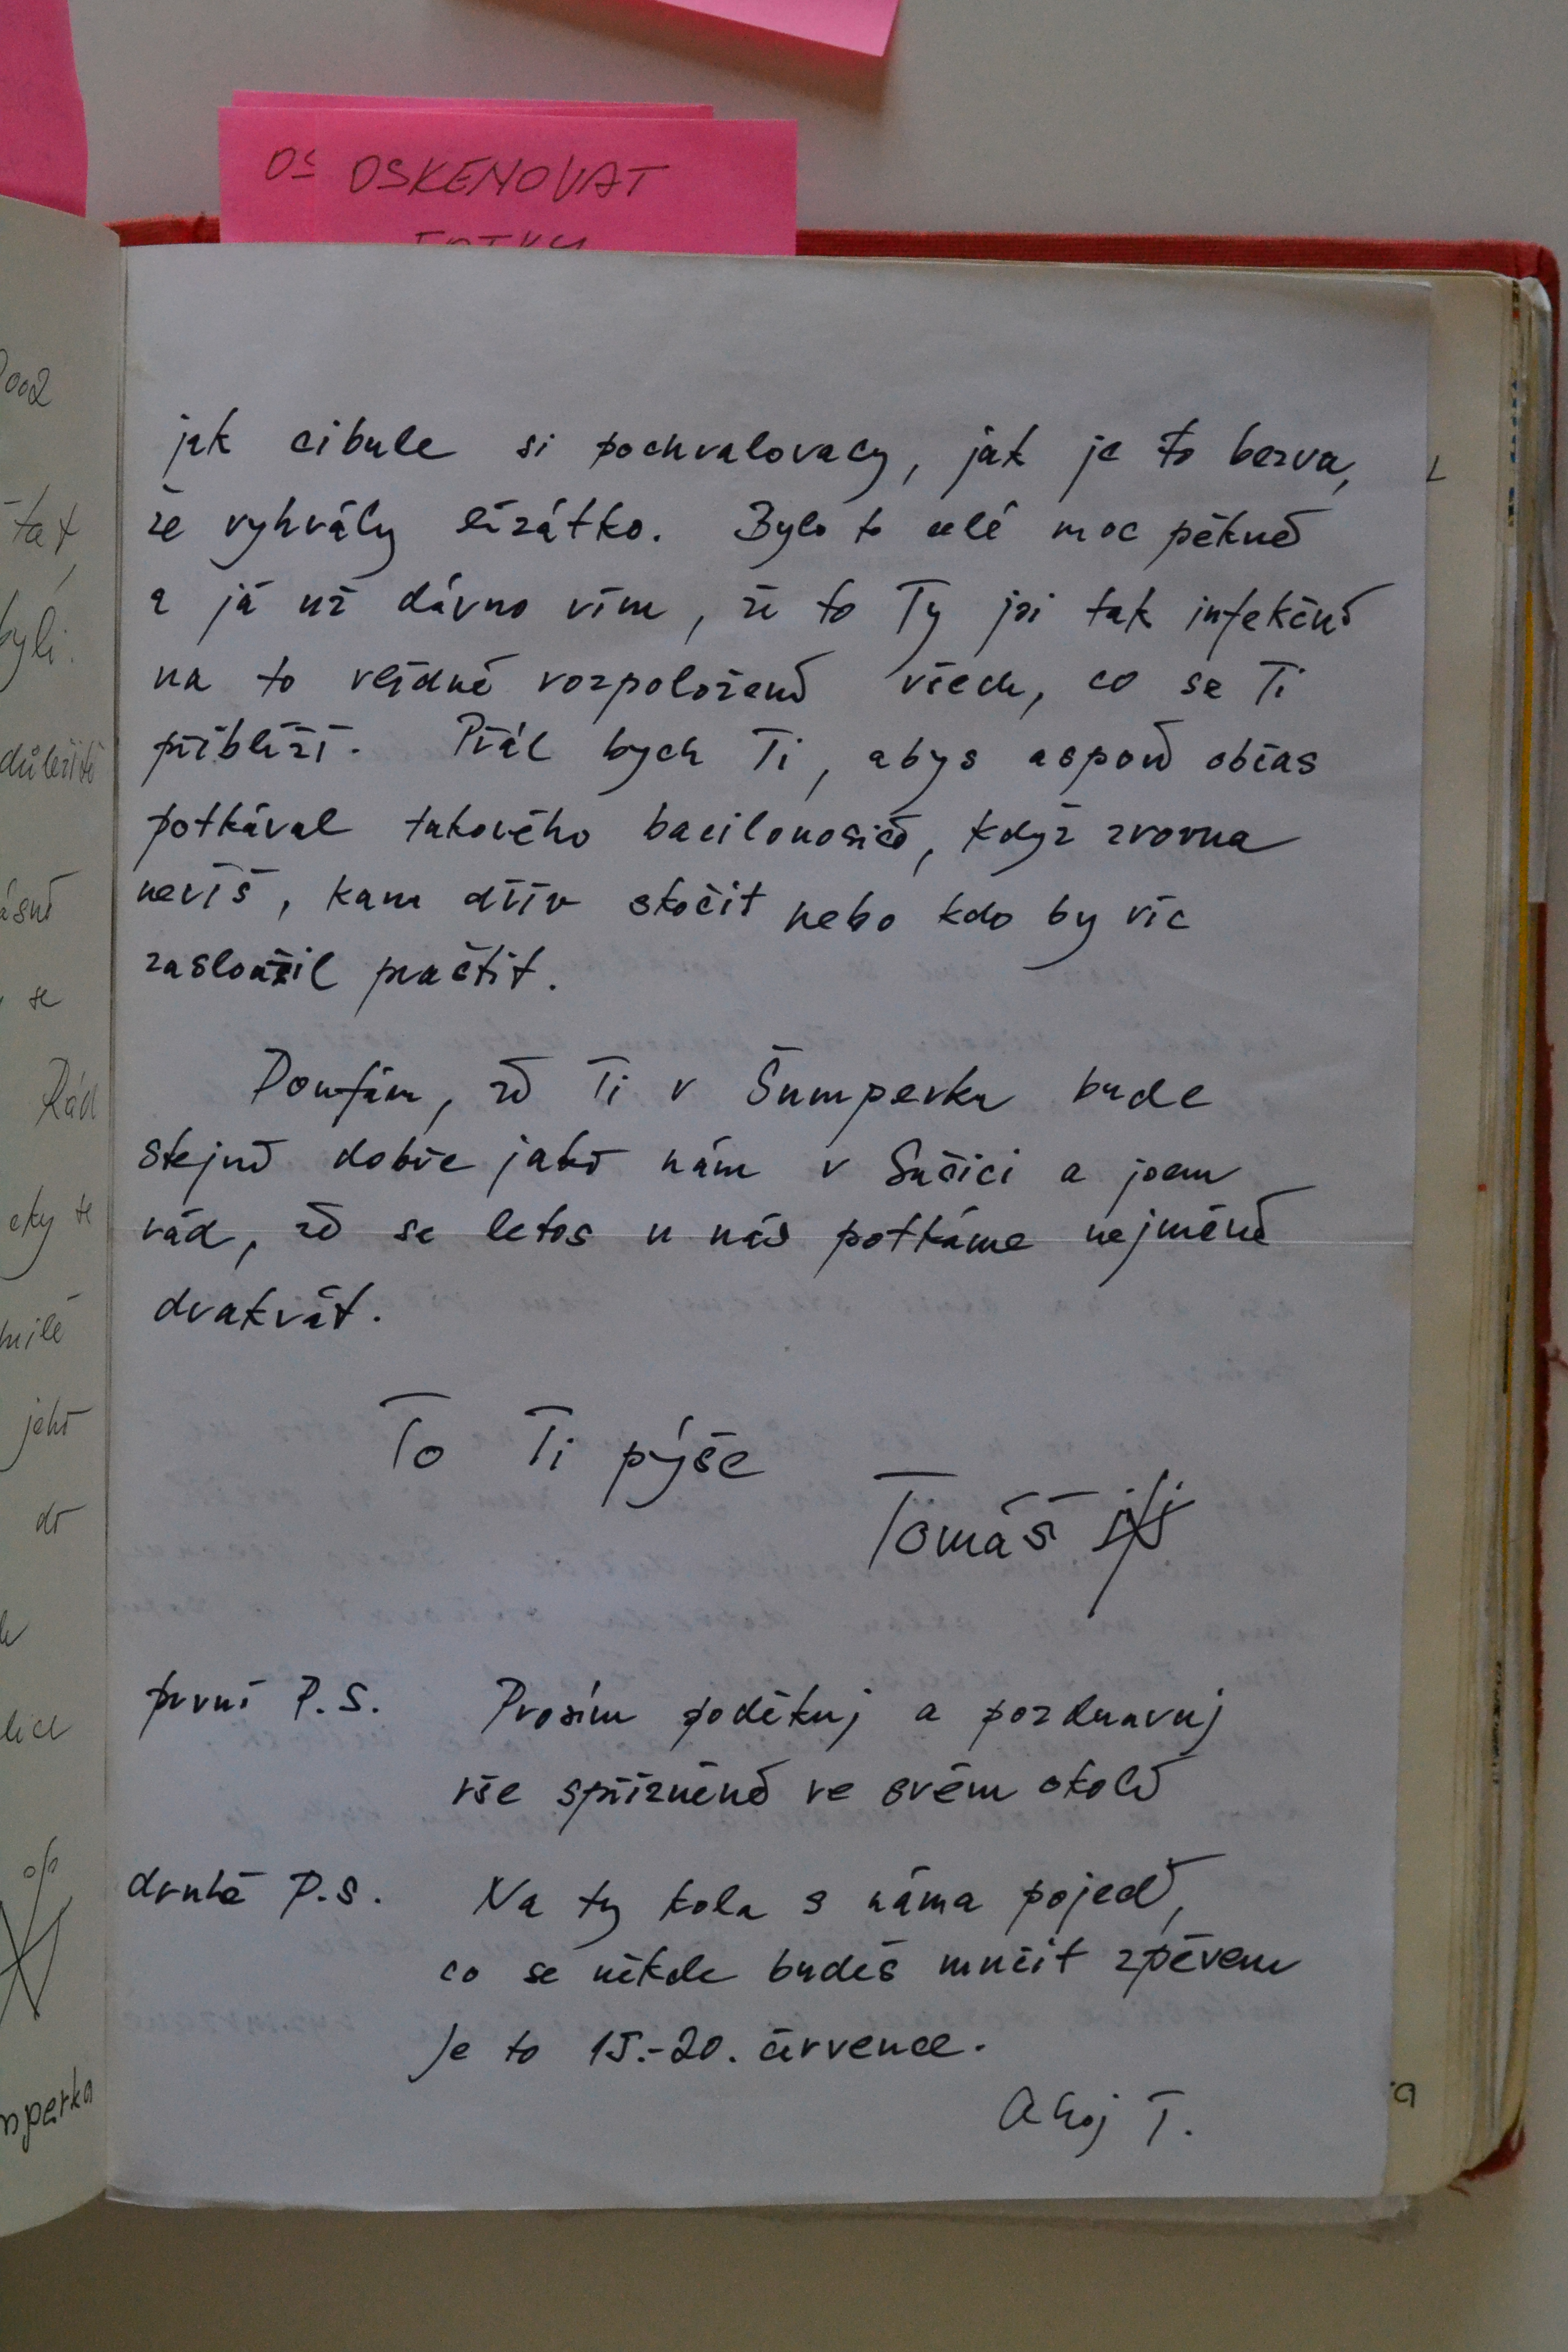 OS OSKENOVAT
FOTKU
jak cibule si pochvalovaly, jak je to bezva,
že vyhrály lízátko. Bylo to celé moc pěkné
a já už dávno vím, že to Ty jsi tak infekční
na to vlídné rozpoložení všech, co se Ti
přiblíží. Přál bych Ti, abys aspoň občas
potkával takového bacilonosiče, když zrovna
nevíš, kam dřív skočit nebo kdo by víc
zasloužil praštit.
Doufám, že Ti v Šumperku bude
stejně dobře jako nám v Sušici a jsem
rád, že se letos u nás potkáme nejméně
dvakrát.
To Ti pýše
Tomáš
první P.S. Prosím poděkuj a pozdravuj
vše spřízněné ve svém okolí
druhé P.S. Na ty kola s náma pojeď,
co se někde budeš mučit zpěvem
Je to 15.-20. července.
Ahoj T.
tat,
byli.
důležité
se
Rád
eky se
milé
do